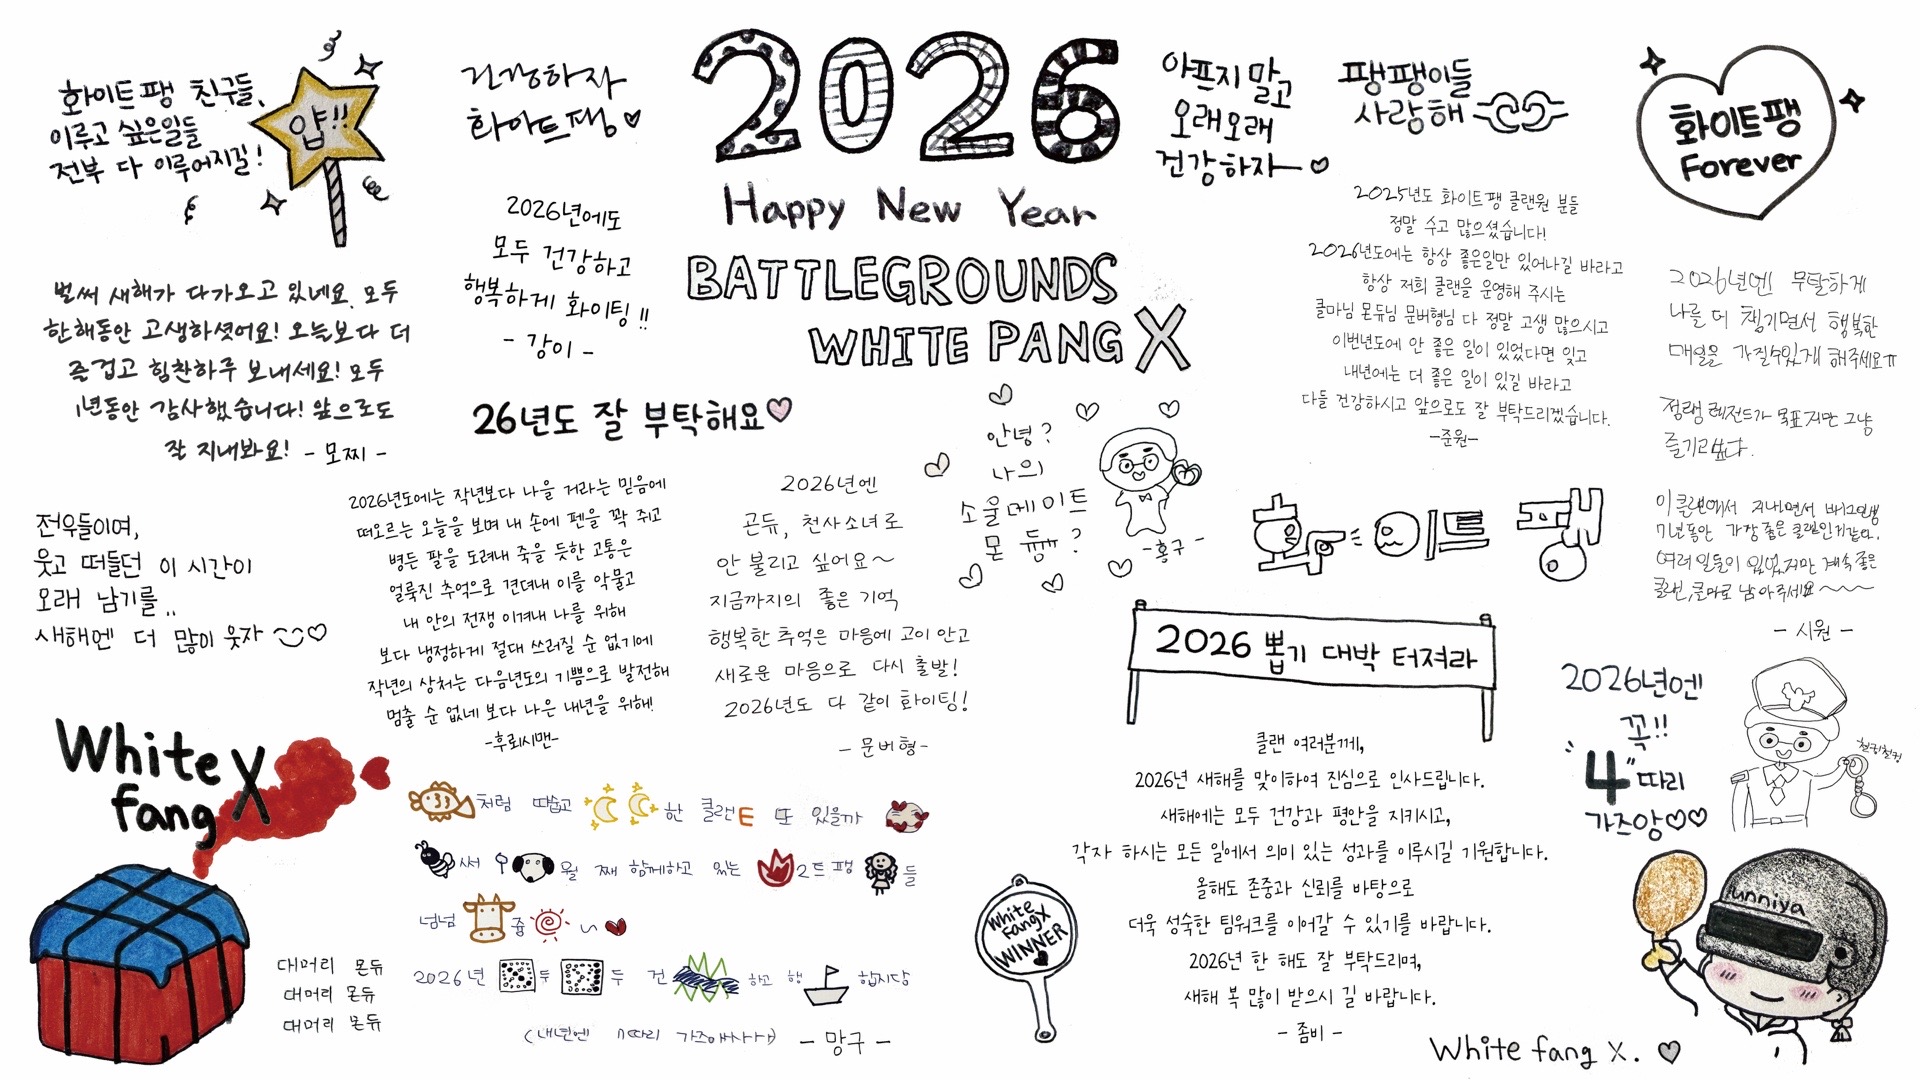 화이트팽 친구들,
이루고 싶은일들
전부 다 이루어지길!
얍!!
건강하자
화아트팽
2026
Happy New Year
BATTLEGROUNDS
WHITE PANG X
아프지 말고
오래오래
건강하자
팽팽이들
사랑해
화이트팽
Forever
2026년에도
모두 건강하고
행복하게 화이팅!!
- 강이 -
벌써 새해가 다가오고 있네요. 모두
한해동안 고생하셧어요! 오늘보다 더
즐겁고 힘찬하루 보내세요! 모두
1년동안 감사했습니다! 앞으로도
잘 지내봐요! - 모찌 -
26년도 잘 부탁해요
2025년도 화이트팽 클랜원 분들
정말 수고 많으셨습니다!
2026년도에는 항상 좋은일만 있어나길 바라고
항상 저희 클랜을 운영해 주시는
클마님 몬듀님 문버형님 다 정말 고생 많으시고
이번년도에 안 좋은 일이 있었다면 잊고
내년에는 더 좋은 일이 있길 바라고
다들 건강하시고 앞으로도 잘 부탁드리겠습니다.
-준원-
2026년엔 무탈하게
나를 더 챙기면서 행복한
매일을 가질수있게 해주세요ㅠ
정램 레전드가 목표지만 그냥
즐기고싶다.
이 클랜에서 지내면서
가장 좋은 클랜인거같다.
여러 일들이 있었지만 계속 좋은
클랜, 클마로 남아주세요~~~~
- 시원 -
전우들이여,
웃고 떠들던 이 시간이
오래 남기를..
새해엔 더 많이 웃자
2026년도에는 작년보다 나을 거라는 믿음에
떠오르는 오늘을 보며 내 손에 펜을 꽉 쥐고
병든 팔을 도려내 죽을 듯한 고통은
얼룩진 추억으로 견뎌내 이를 악물고
내 안의 전쟁 이겨내 나를 위해
보다 냉정하게 절대 쓰러질 순 없기에
작년의 상처는 다음년도의 기쁨으로 발전해
멈출 순 없네 보다 나은 내년을 위해!
-후뢰시맨-
2026년엔
곤듀, 천사소녀로
안 불리고 싶어요~
지금까지의 좋은 기억
행복한 추억은 마음에 고이 안고
새로운 마음으로 다시 출발!
2026년도 다 같이 화이팅!
- 문버형-
안녕?
나의
소울메이트
몬 듐ㅠ?
-홍구-
화이트 팽
2026 뽑기 대박 터져라
클랜 여러분께,
2026년 새해를 맞이하여 진심으로 인사드립니다.
새해에는 모두 건강과 평안을 지키시고,
각자 하시는 모든 일에서 의미 있는 성과를 이루시길 기원합니다.
올해도 존중과 신뢰를 바탕으로
더욱 성숙한 팀워크를 이어갈 수 있기를 바랍니다.
2026년 한 해도 잘 부탁드리며,
새해 복 많이 받으시 길 바랍니다.
- 좀비 -
2026년엔
꼭!!
"4"따리
가즈앙
철컹철컹
White
fang X
처럼 따습고 한 클랜E 또 있을까
써 9 월 째 함께하고 있는 2트팽 들
넘넘 쥼 ~
2026년 두 두 건 하고 행 합시당
(내년엔 따리 가즈아) - 망구 -
대머리 몬듀
대머리 몬듀
대머리 몬듀
White
Fang X
WINNER
unniya
White fang X.